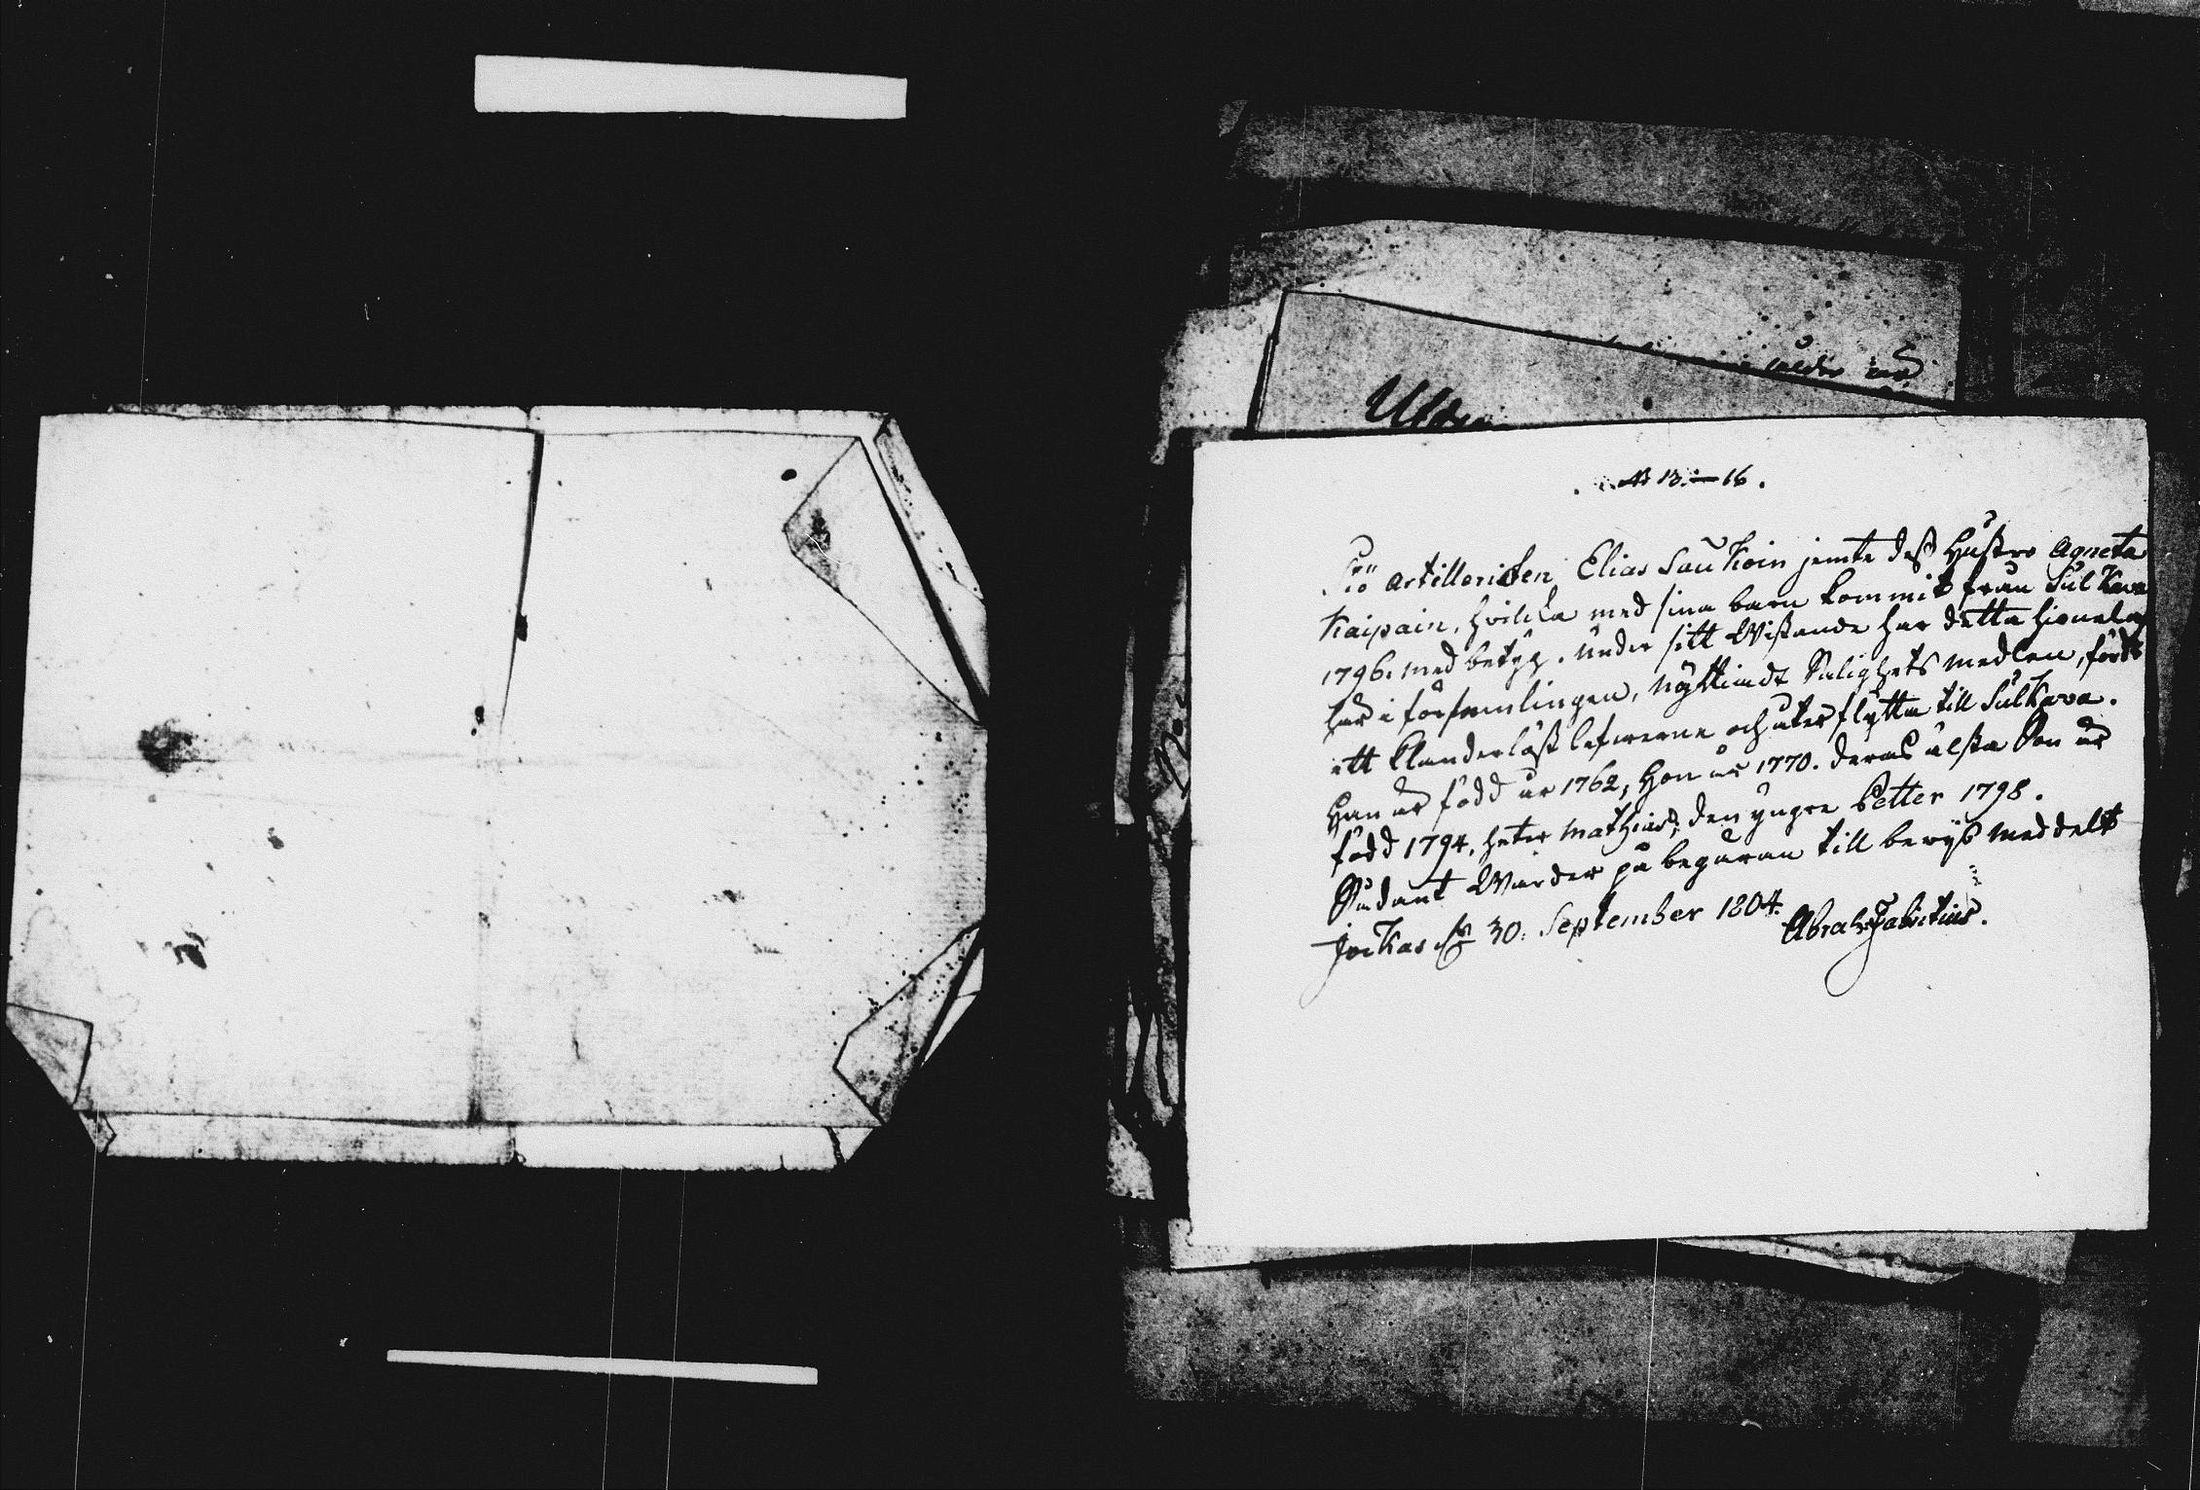 N 13.—16.
Siö artilleristen Elias Saukoin jemte dess Hustro Agneta
Kaipain, hvilcka med sina barn kommit från Sulkava
1796. med betyg. under sitt Wistande har detta hionelag
här i församlingen, nÿttiadt Salighets medlen, fördt
ett klanderlöst lefwerne och åter flÿtta till Sulkava.
Han är född år 1762, hon år 1770. deras älsta Son är
född 1794, heter Mathias, den yngre Petter 1798.
Sådant Warder på begäran till bewis meddelt
Jockas d 30. September 1804.
Abrah Fabritius.